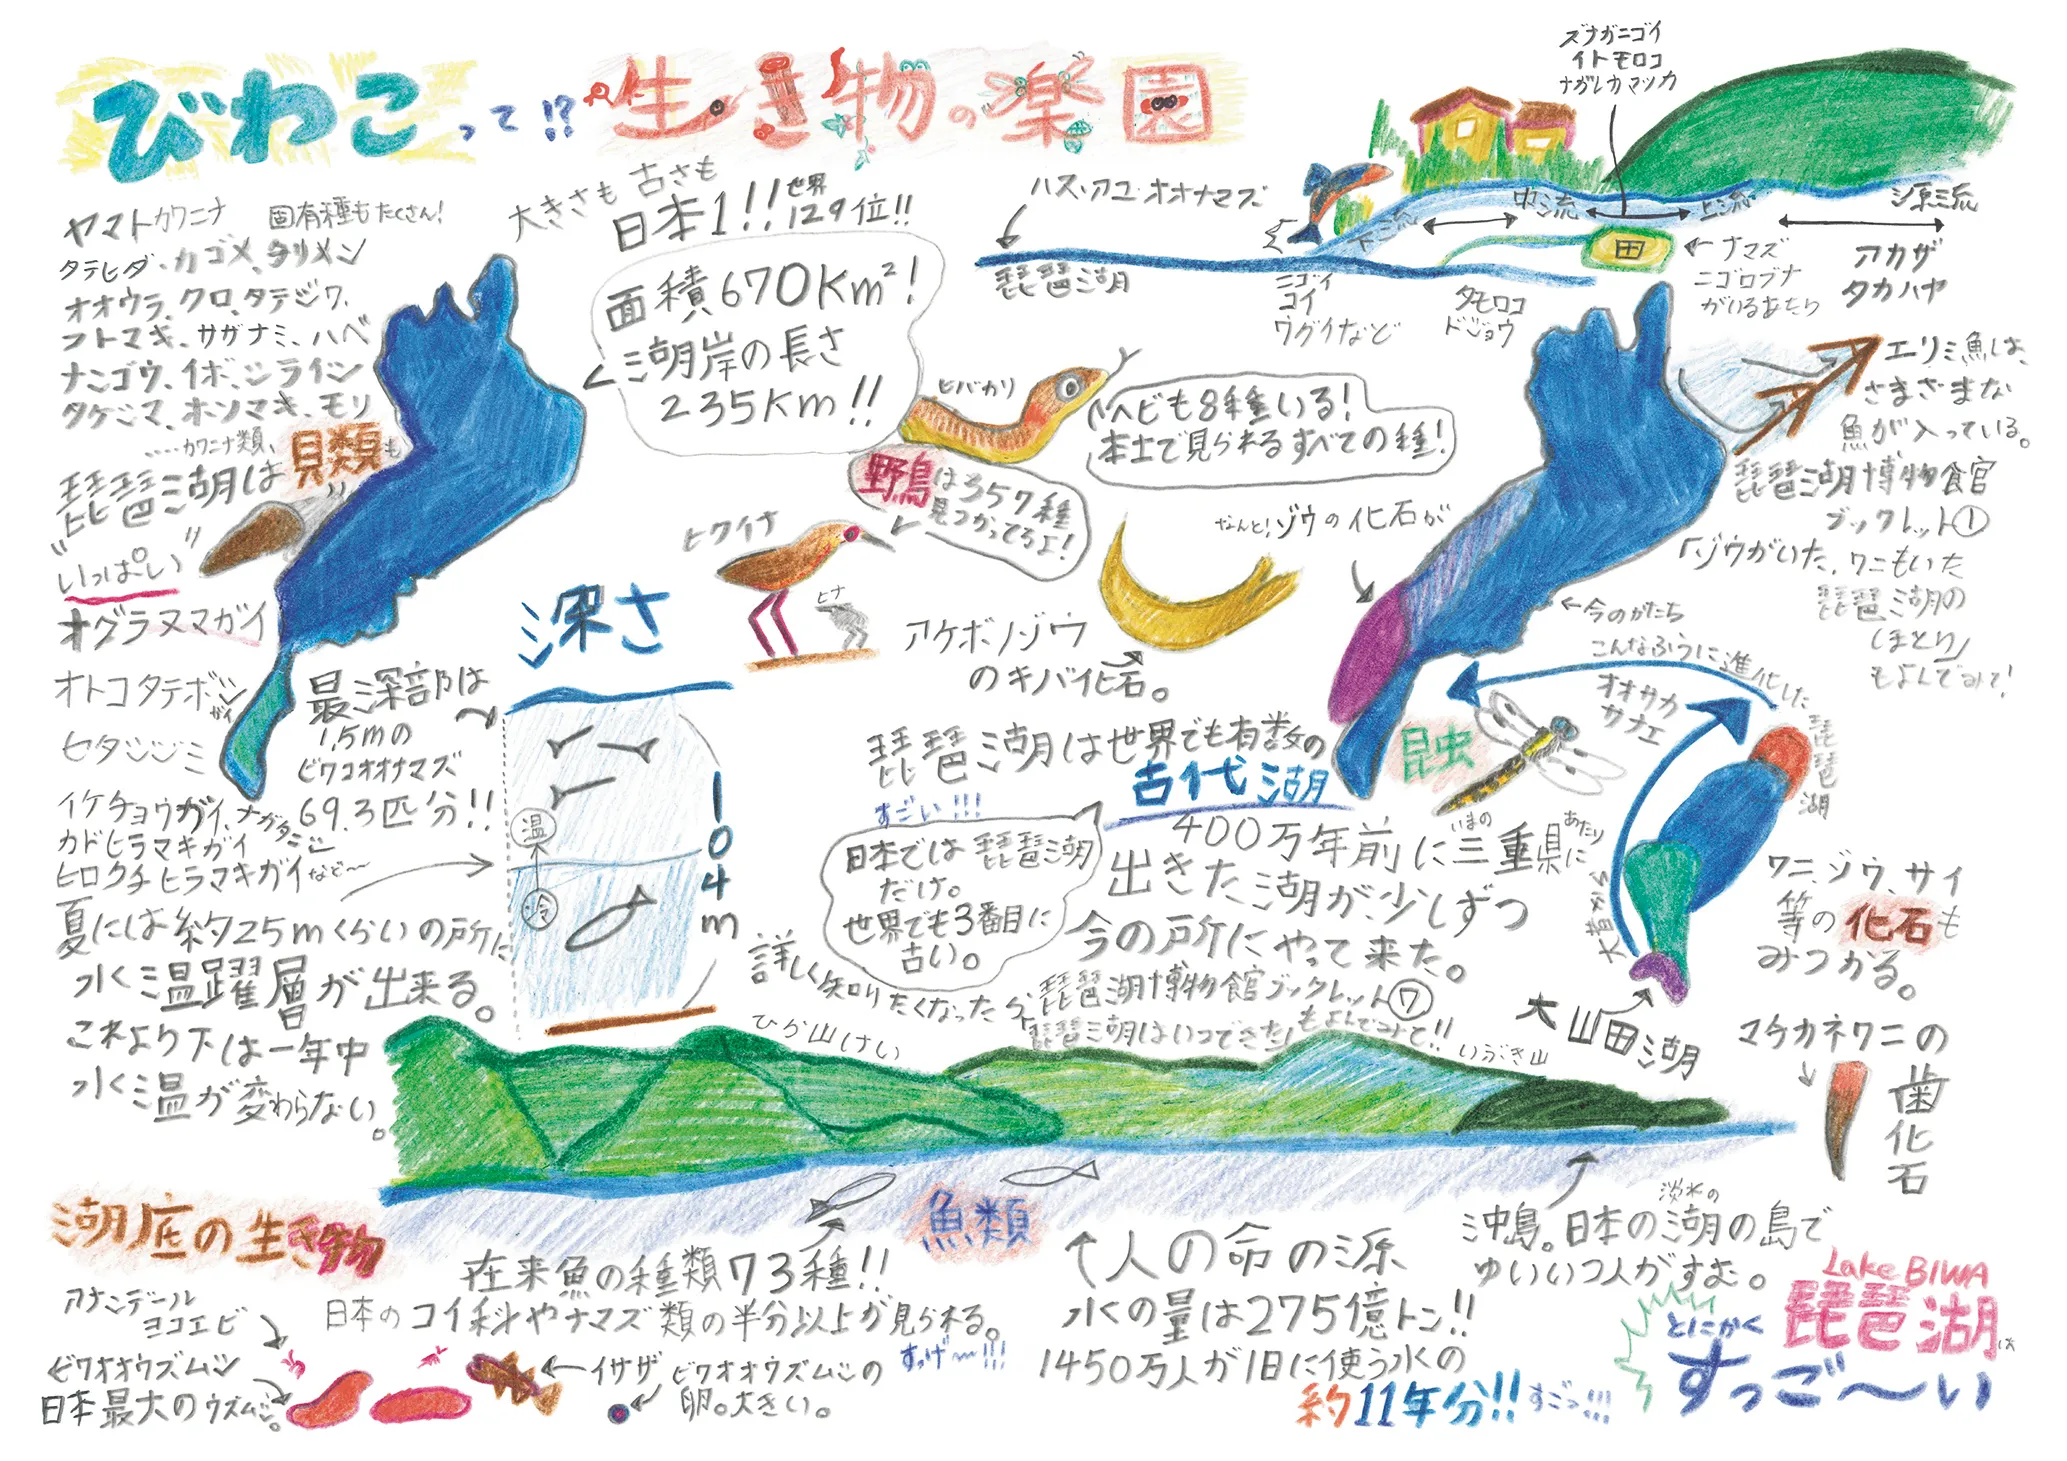 びわこって!?生き物の楽園
ヤマトカワニナ
固有種もたくさん!
タテヒダ、カゴメ、タリメン
オオウラ、クロ、タテジワ、
フトマキ、サザナミ、ハベ
ナンゴウ、イボ、シライシ
タケシマ、ホソマキ、モリ
・・・・カワニナ類、
琵琶湖は貝類も
"いっぱい"
オグラヌマガイ
オトコタテボシガイ
セタシジミ
イケチョウガイ、ナガタニシ
カドヒラマキガイ
ヒロクチヒラマキガイなど〜
大きさも古さも
日本1!!世界129位!!
面積670Km²!
湖岸の長さ
235Km!!
ヒバカリ
ヘビも8種いる!
本土で見られるすべての種!
野鳥は357種
見つかってるよ!
ヒクイナ
ヒナ
アケボノゾウ
のキバ化石。
深さ
最深部は
1.5mの
ビワコオオナマズ
69.3匹分!!
104m
温
冷
夏には約25mくらいの所に
水温躍層が出来る。
これより下は一年中
水温が変わらない。
ハス・アユ・オオナマズ
琵琶湖
ズナガニゴイ
イトモロコ
ナガレカマツカ
下流
中流
上流
源流
田
ニゴイ
コイ
ウグイなど
タモロコ
ドジョウ
ナマズ
ニゴロブナ
がいるあたり
アカザ
タカハヤ
エリ 魚は、
さまざまな
魚が入っている。
琵琶湖博物館
ブックレット①
「ゾウがいた、ワニもいた
琵琶湖の
ほとり」
もよんでみて!
なんと!ゾウの化石が
今のかたち
こんなふうに進化した
昆虫
オオサカ
サナエ
琵琶湖
大昔から
大山田湖
ワニ、ゾウ、サイ
等の化石も
みつかる。
マチカネワニの
歯化石
琵琶湖は世界でも有数の
古代湖
すごい!!!
日本では琵琶湖
だけ。
世界でも3番目に
古い。
400万年前に三重県に
いまの
あたり
出きた湖が少しずつ
今の所にやって来た。
詳しく知りたくなったら
琵琶湖博物館ブックレット⑦
琵琶湖はいつできた
もよんでみて!!
ひら山けい
いぶき山
沖島。日本の淡水の湖の島で
ゆいいつ人がすむ。
湖底の生き物
アナンデール
ヨコエビ
ビワオオウズムシ
日本最大のウズムシ。
イサザ
ビワオオウズムシの
卵。大きい。
魚類
在来魚の種類73種!!
日本のコイ科やナマズ類の半分以上が見られる。
すっげ〜!!!
人の命の源
水の量は275億トン!!
1450万人が1日に使う水の
約11年分!!すごっ!!!
Lake BIWA
琵琶湖は
とにかく
すっご〜い